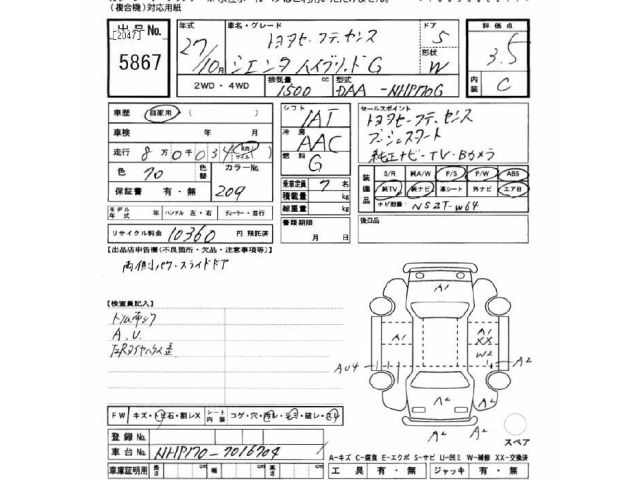 (複合機)対応用紙
出品No.
[2047]
5867
年式
27/10月
車名・グレード
トヨタセーフティセンス
シエンタ ハイブリッドG
ドア
5
形状
W
評価点
3.5
内装
C
2WD・4WD
排気量
1500 cc
型式
DAA-NHP170G
車歴 自家用 ( )
車検 年 月
走行 8万0千034 km マイル
色 70 色替 カラーNo.
209
保証書 有・無
シフト
IAT
冷房
AAC
燃料
G
乗車定員 7 名
積載量 kg
総重量 kg
書類期限
月 日
セールスポイント
トヨタセーフティセンス
プッシュスタート
純正ナビ・TV・Bカメラ
装備品
S/R 純A/W P/S P/W ABS
純TV 純ナビ 革シート 外ナビ エアB
ナビ型番 NSZT-W64
モデル年式 年 ハンドル 左・右 ディーラー・並行
後日品
リサイクル料金 10360 円 預託済
【出品店申告欄(不良箇所・欠品・注意事項等)】
両側パワースライドドア
【検査員記入】
A.U.
A1
A1
A1
XX
W2
AU4
A2
A2
A2
A2
A2
A2
スペア
FW キズ・トビ石・割レX シート内装 コゲ・穴・汚レ・シミ・破レ・スリ
登録No.
車台No. NHP170-7016704
A-キズ C-腐食 E-エクボ S-サビ U-凹ミ W-補修 XX-交換済
車庫証明用 長さ cm 幅 cm 高さ cm 工具 有・無 ジャッキ 有・無